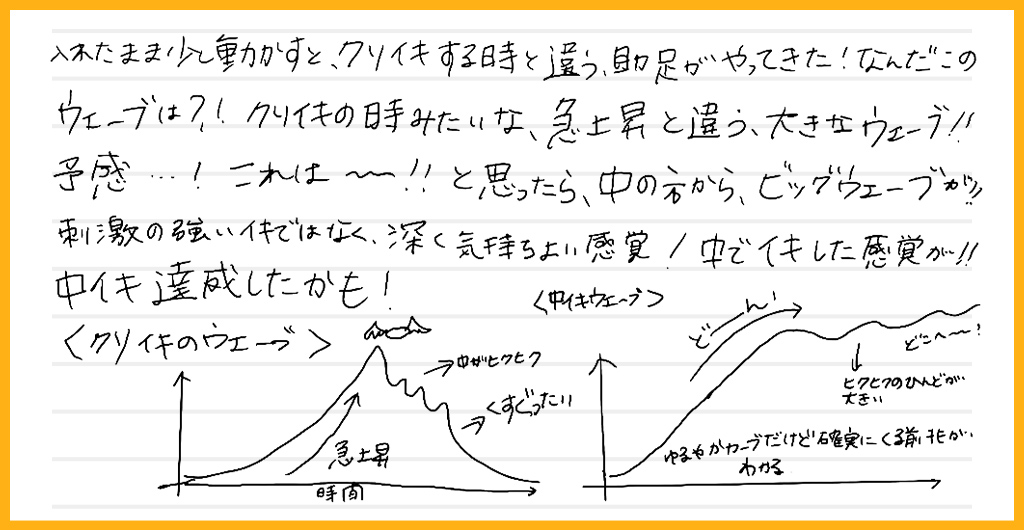 入れたまま少し動かすと、クリイキする時と違う、助走がやってきた！なんだこの
ウェーブは？！クリイキの時みたいな、急上昇と違う、大きなウェーブ！！
予感…！これは〜〜！！と思ったら、中の方から、ビッグウェーブが！！
刺激の強いイキではなく、深く気持ちよい感覚！中でイキした感覚が！！
中イキ達成したかも！
〈クリイキのウェーブ〉
急上昇
中がヒクヒク
くすぐったい
時間
〈中イキウェーブ〉
どーん！
どこへ〜〜！
ヒクヒクのひんどが
大きい
ゆるやかカーブだけど確実にくる前兆が
わかる